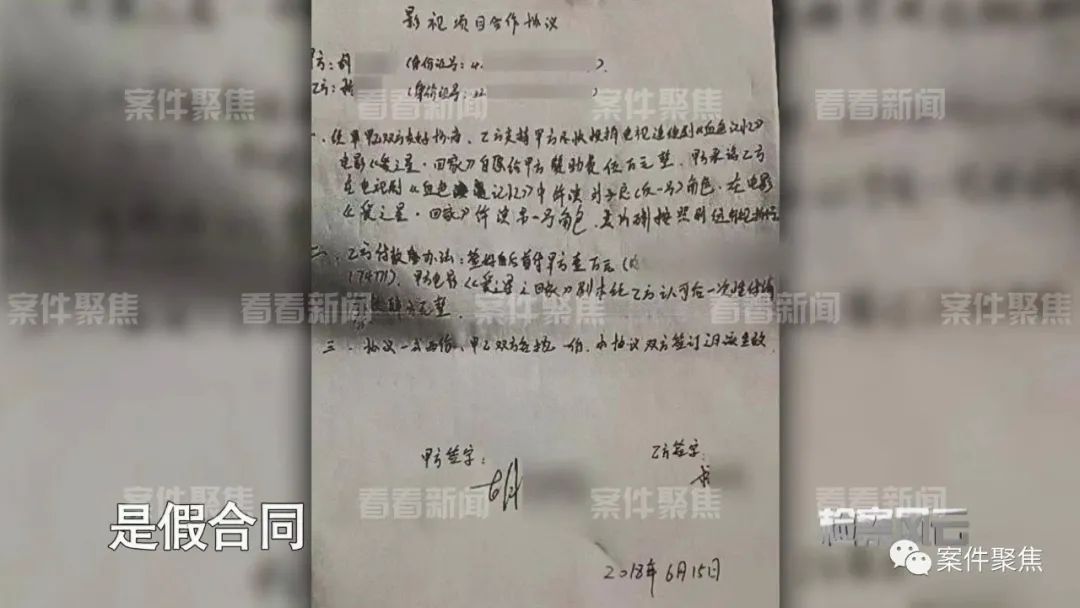 影视项目合作协议
甲方:胡 (身份证号:4 ).
乙方: (身份证号: )
一、经甲乙双方友好协商、乙方支持甲方尽快投拍电视连续剧《血色记忆》
电影《爱之星·回家》自愿给甲方赞助费伍万元整. 甲方承诺乙方
在电视剧《血色记忆》中饰演 (反一号)角色. 在电影
《爱之星·回家》饰演第一号角色.
二、乙方付款办法:签好后首付甲方壹万元(
17471). 甲方电影《爱之星之回家》剧本经乙方认可后一次性付清
万元整.
三、协议一式两份、甲乙双方各执一份. 本协议双方签订 生效
甲方签字:
乙方签字:
胡
2018年6月15日
是假合同
案件聚焦
看看新闻
案件聚焦
看看新闻
案件聚焦
看看新闻
案件聚焦
看看新闻
案件聚焦
案件聚焦
看看新闻
案件聚焦
看看新闻
检察风云
案件聚焦